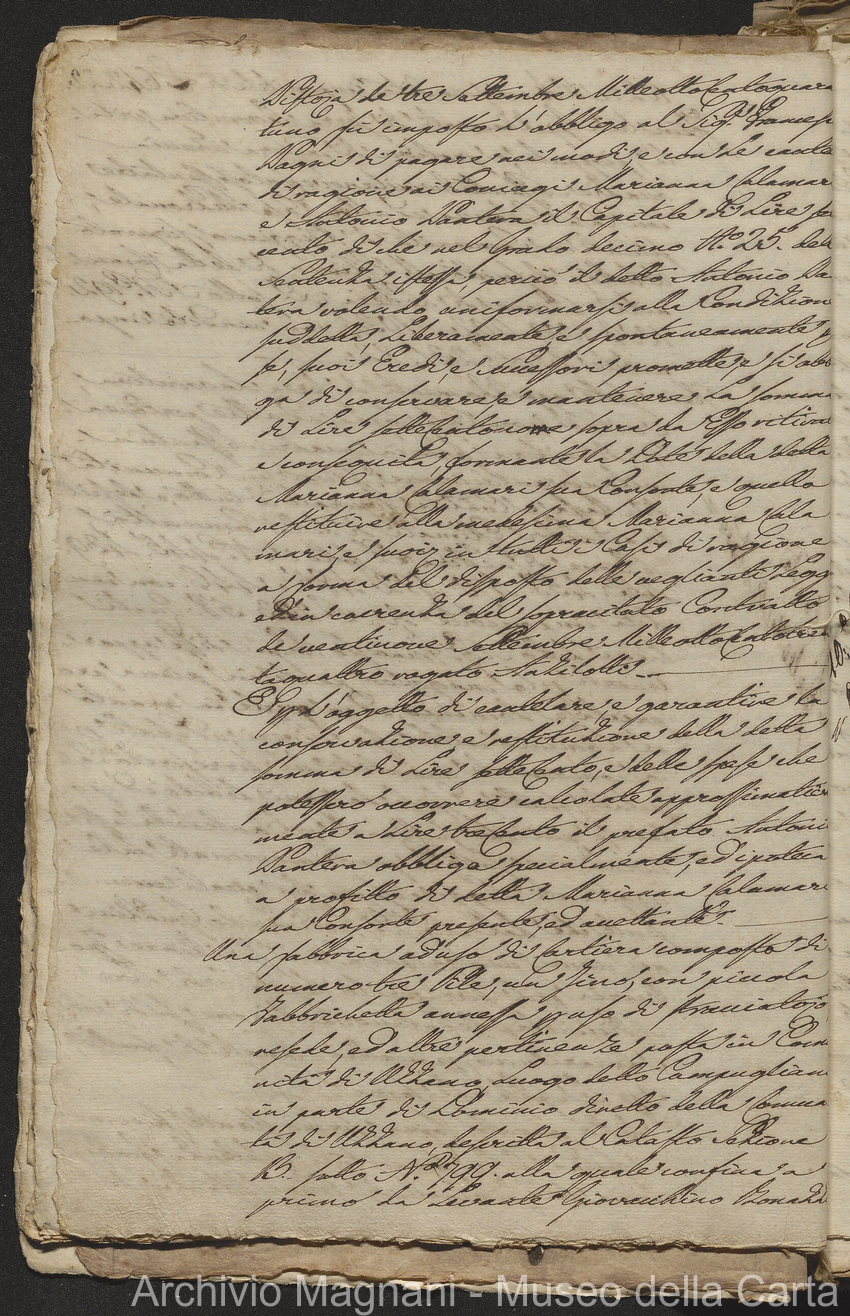 Pistoja de tre Settembre Milleottocentoquara
tuno fù imposto l'obbligo al Sig.r Frances
Pagni di pagare nei modi, e con le caute
di ragione ai Coniugi Marianna Calamar
e Antonio Pantera il Capitale di Lire se
cento di che nel Grado decimo N.o 25. dell
Sentenza istessa, perciò il detto Antonio Pa
tera volendo uniformarsi alla Condizion
suddetta, Liberamente, e spontaneamente p
se, suoi Eredi, e Successori promette, e si obb
ga di conservare, e mantenere la somma
di Lire settecentonove sopra da Esso ritira
e conseguita, formante la Dote della detta
Marianna Calamari sua Consorte, e quella
restituire alla medesima Marianna Cala
mari, e suoi in tutti i Casi di ragione
a forma del disposto delle veglianti Legg
ed in coerenza del sopracitato Contratto
de ventinove Settembre Milleottocentotren
taquattro rogato
E p l'oggetto di cautelare, e garantire la
conservazione e restituzione della detta
somma di Lire settecento, e delle spese che
potessero occorrere calcolate approssimativ
mente a Lire trecento il prefato Antoni
Pantera obbliga specialmente, ed ipoteca
a profitto di detta Marianna Calamari
sua Consorte presente, ed accettante.
Una fabbrica ad uso di Cartiera composta di
numero tre Pile, un Tino, con piccola
Fabbrichetta annessa p uso di stracciatojo
resede, ed altre pertinenze posta in Com
nità di Uzzano, Luogo detto Campuglian
in parte di Dominio diretto della Comun
tà di Uzzano, descritta al Catasto Sezione
B. sotto N.o 799. alla quale confina a
primo da Levante Giovacchino Bonazz
Archivio Magnani - Museo della Carta